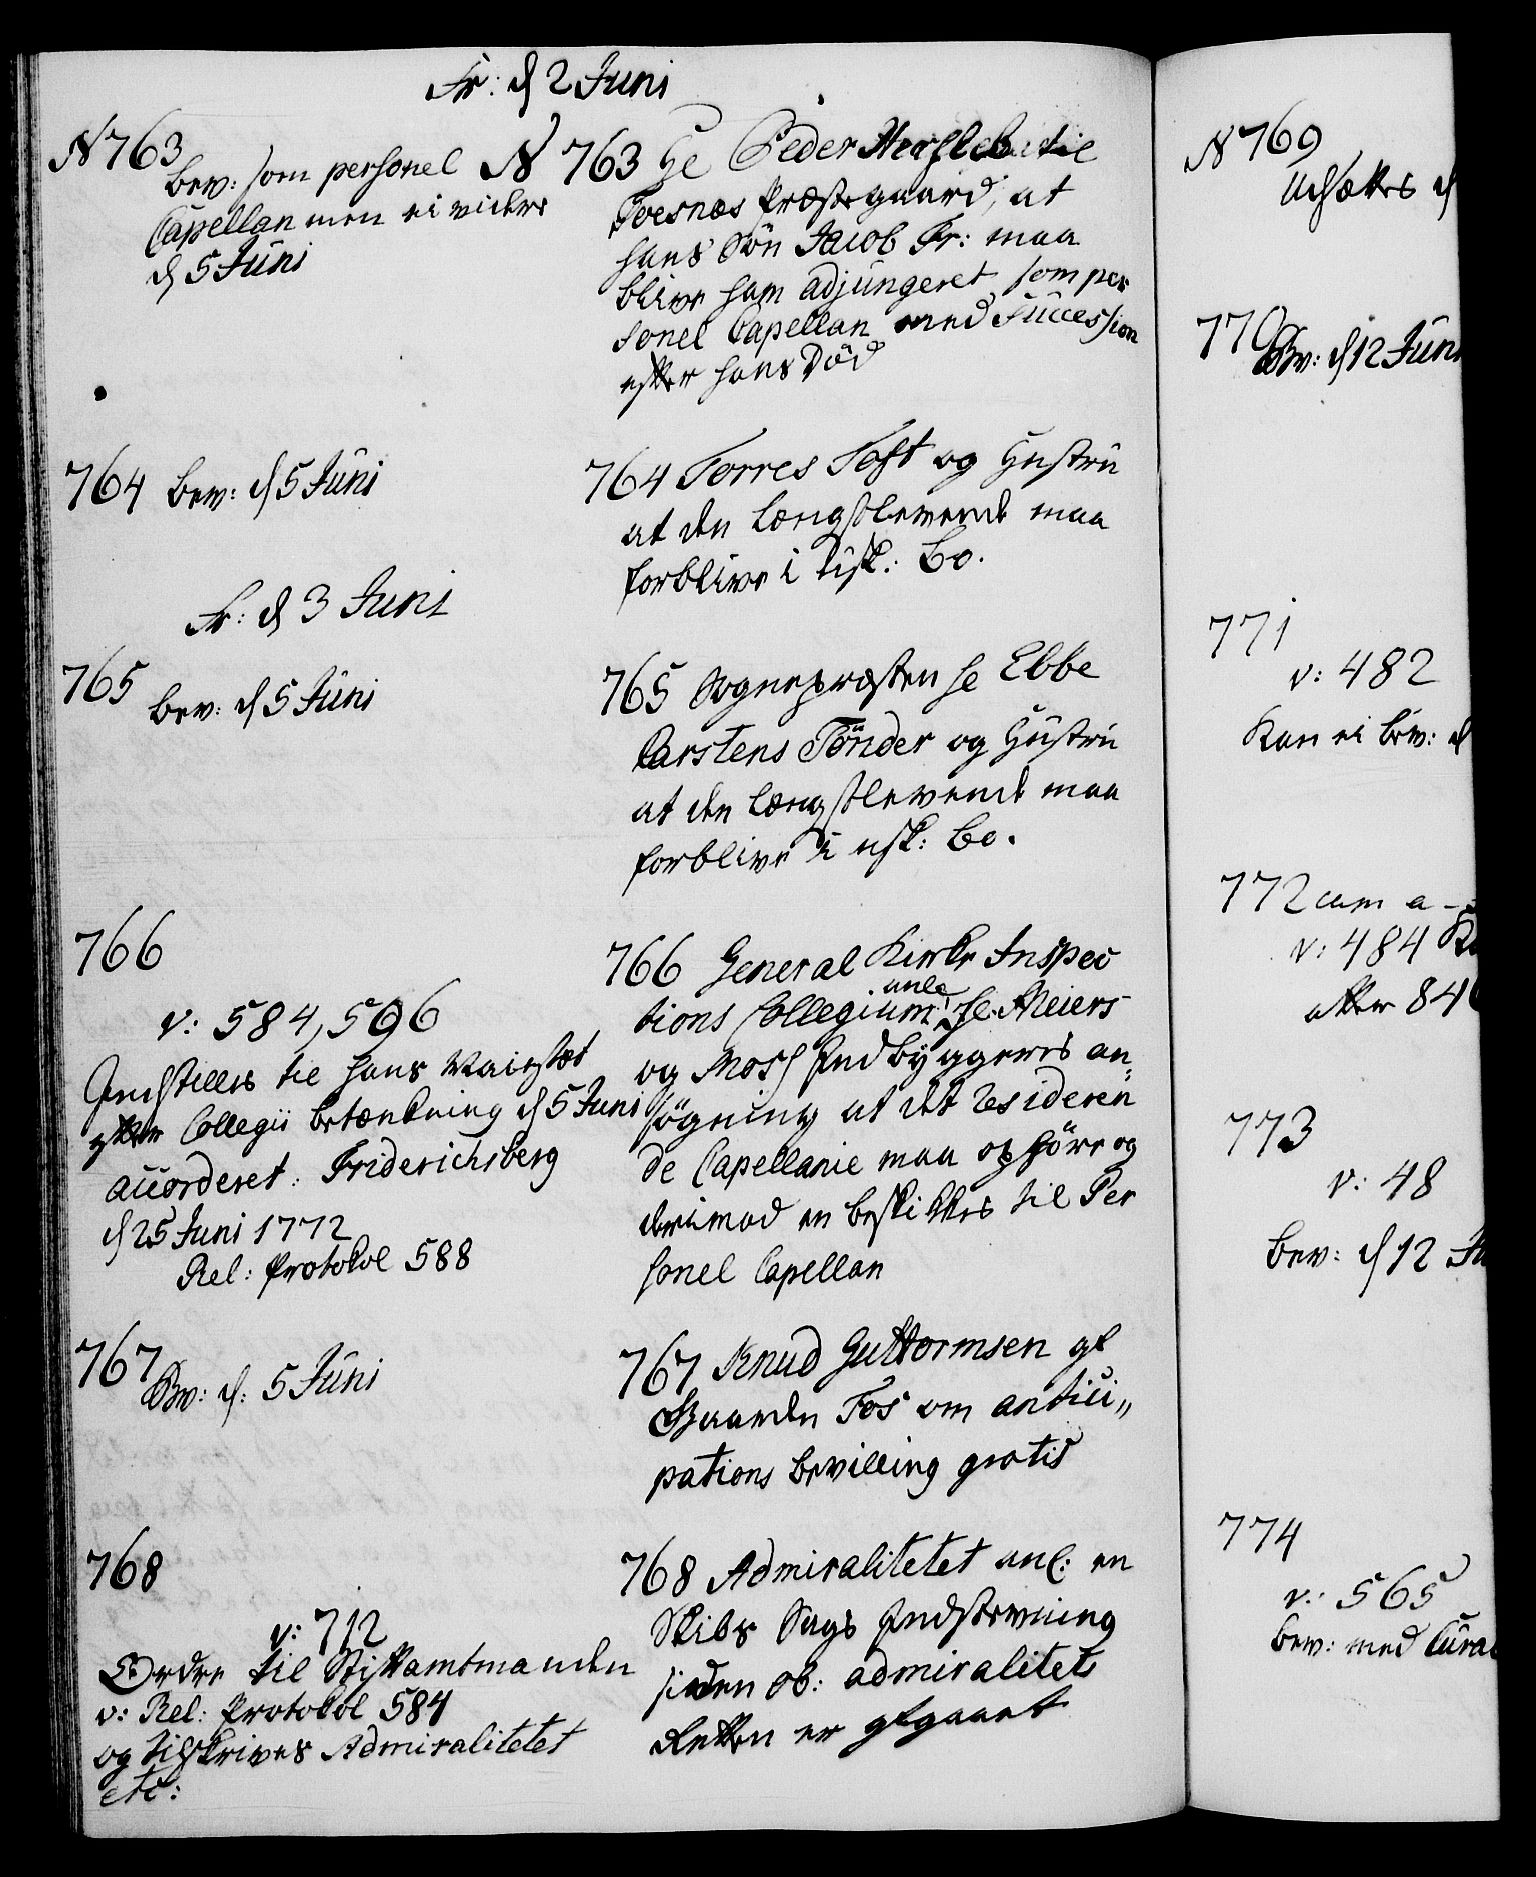 Fr: d 2 Juni
N 763
Bev: som personel
Capellan men ei videre
d 5 Juni
N 763 Hr Peder Hersleb til
Toesnæs Præstegaard, at
hans Søn Jacob Fr: maa
blive ham adjungeret som per
sonel Capellan med Succession
efter hans Død
764 Bev: d 5 Juni
764 Torres Toft og Hustru
at den længstlevende maa
forblive i uisk: Bo.
Fr: d 3 Juni
765 Bev: d 5 Juni
765 Sognepræsten Hr Ebbe
Carstens Tönder og Hustru
at den længstlevende maa
forblive i usk: Bo.
766
v: 584, 596
Indstilles til Hans Maiestæt
efter Collegii betænkning d 5 Juni
accorderet. Friderichsberg
d 25 Juni 1772
Rel: Protokol 588
766 General Kirke Inspec
tions Collegium anl: Hr Meiers
og Moss Indbyggeres an-
søgning at det Resideren
de Capellanie maa ophöre og
derimod en beskikkes til Per
sonel Capellan
767 Bev: d: 5 Juni
767 Knud Guttormsen pf
Gaarden Fos om antici-
pations bevilling gratis
768
v: 712
Ordre til Stiftamtmanden
v: Rel: Protokol 584
og tilskrives Admiralitetet
etc:
768 Admiralitetet anl: en
Skibs Sags Indstevning
siden ob: admiralitets
Retten er afgaaet
N 769
Udsættes d
770 Bev: d 12 Juni
771
v: 482
Kan ei bev: d
772 cum a
v: 484
efter 84
773
v: 48
Bev: d 12
774
v: 565
Bev: med Cura